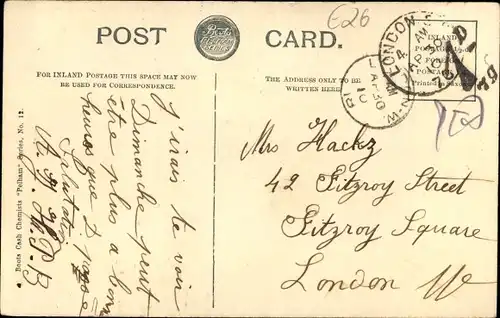 E26
POST
CARD.
FOR INLAND POSTAGE THIS SPACE MAY NOW
BE USED FOR CORRESPONDENCE.
THE ADDRESS ONLY TO BE
WRITTEN HERE.
INLAND
POSTAGE
FOREIGN
POSTAGE
Printed in Saxony
LONDON
J'irais te voir
Dimanche peut
être plus a bonne
heures que
Salutat
Mrs Hackz
42 Fitzroy Street
Fitzroy Square
London W
Boots Cash Chemists "Pelham" Series, No. 12.